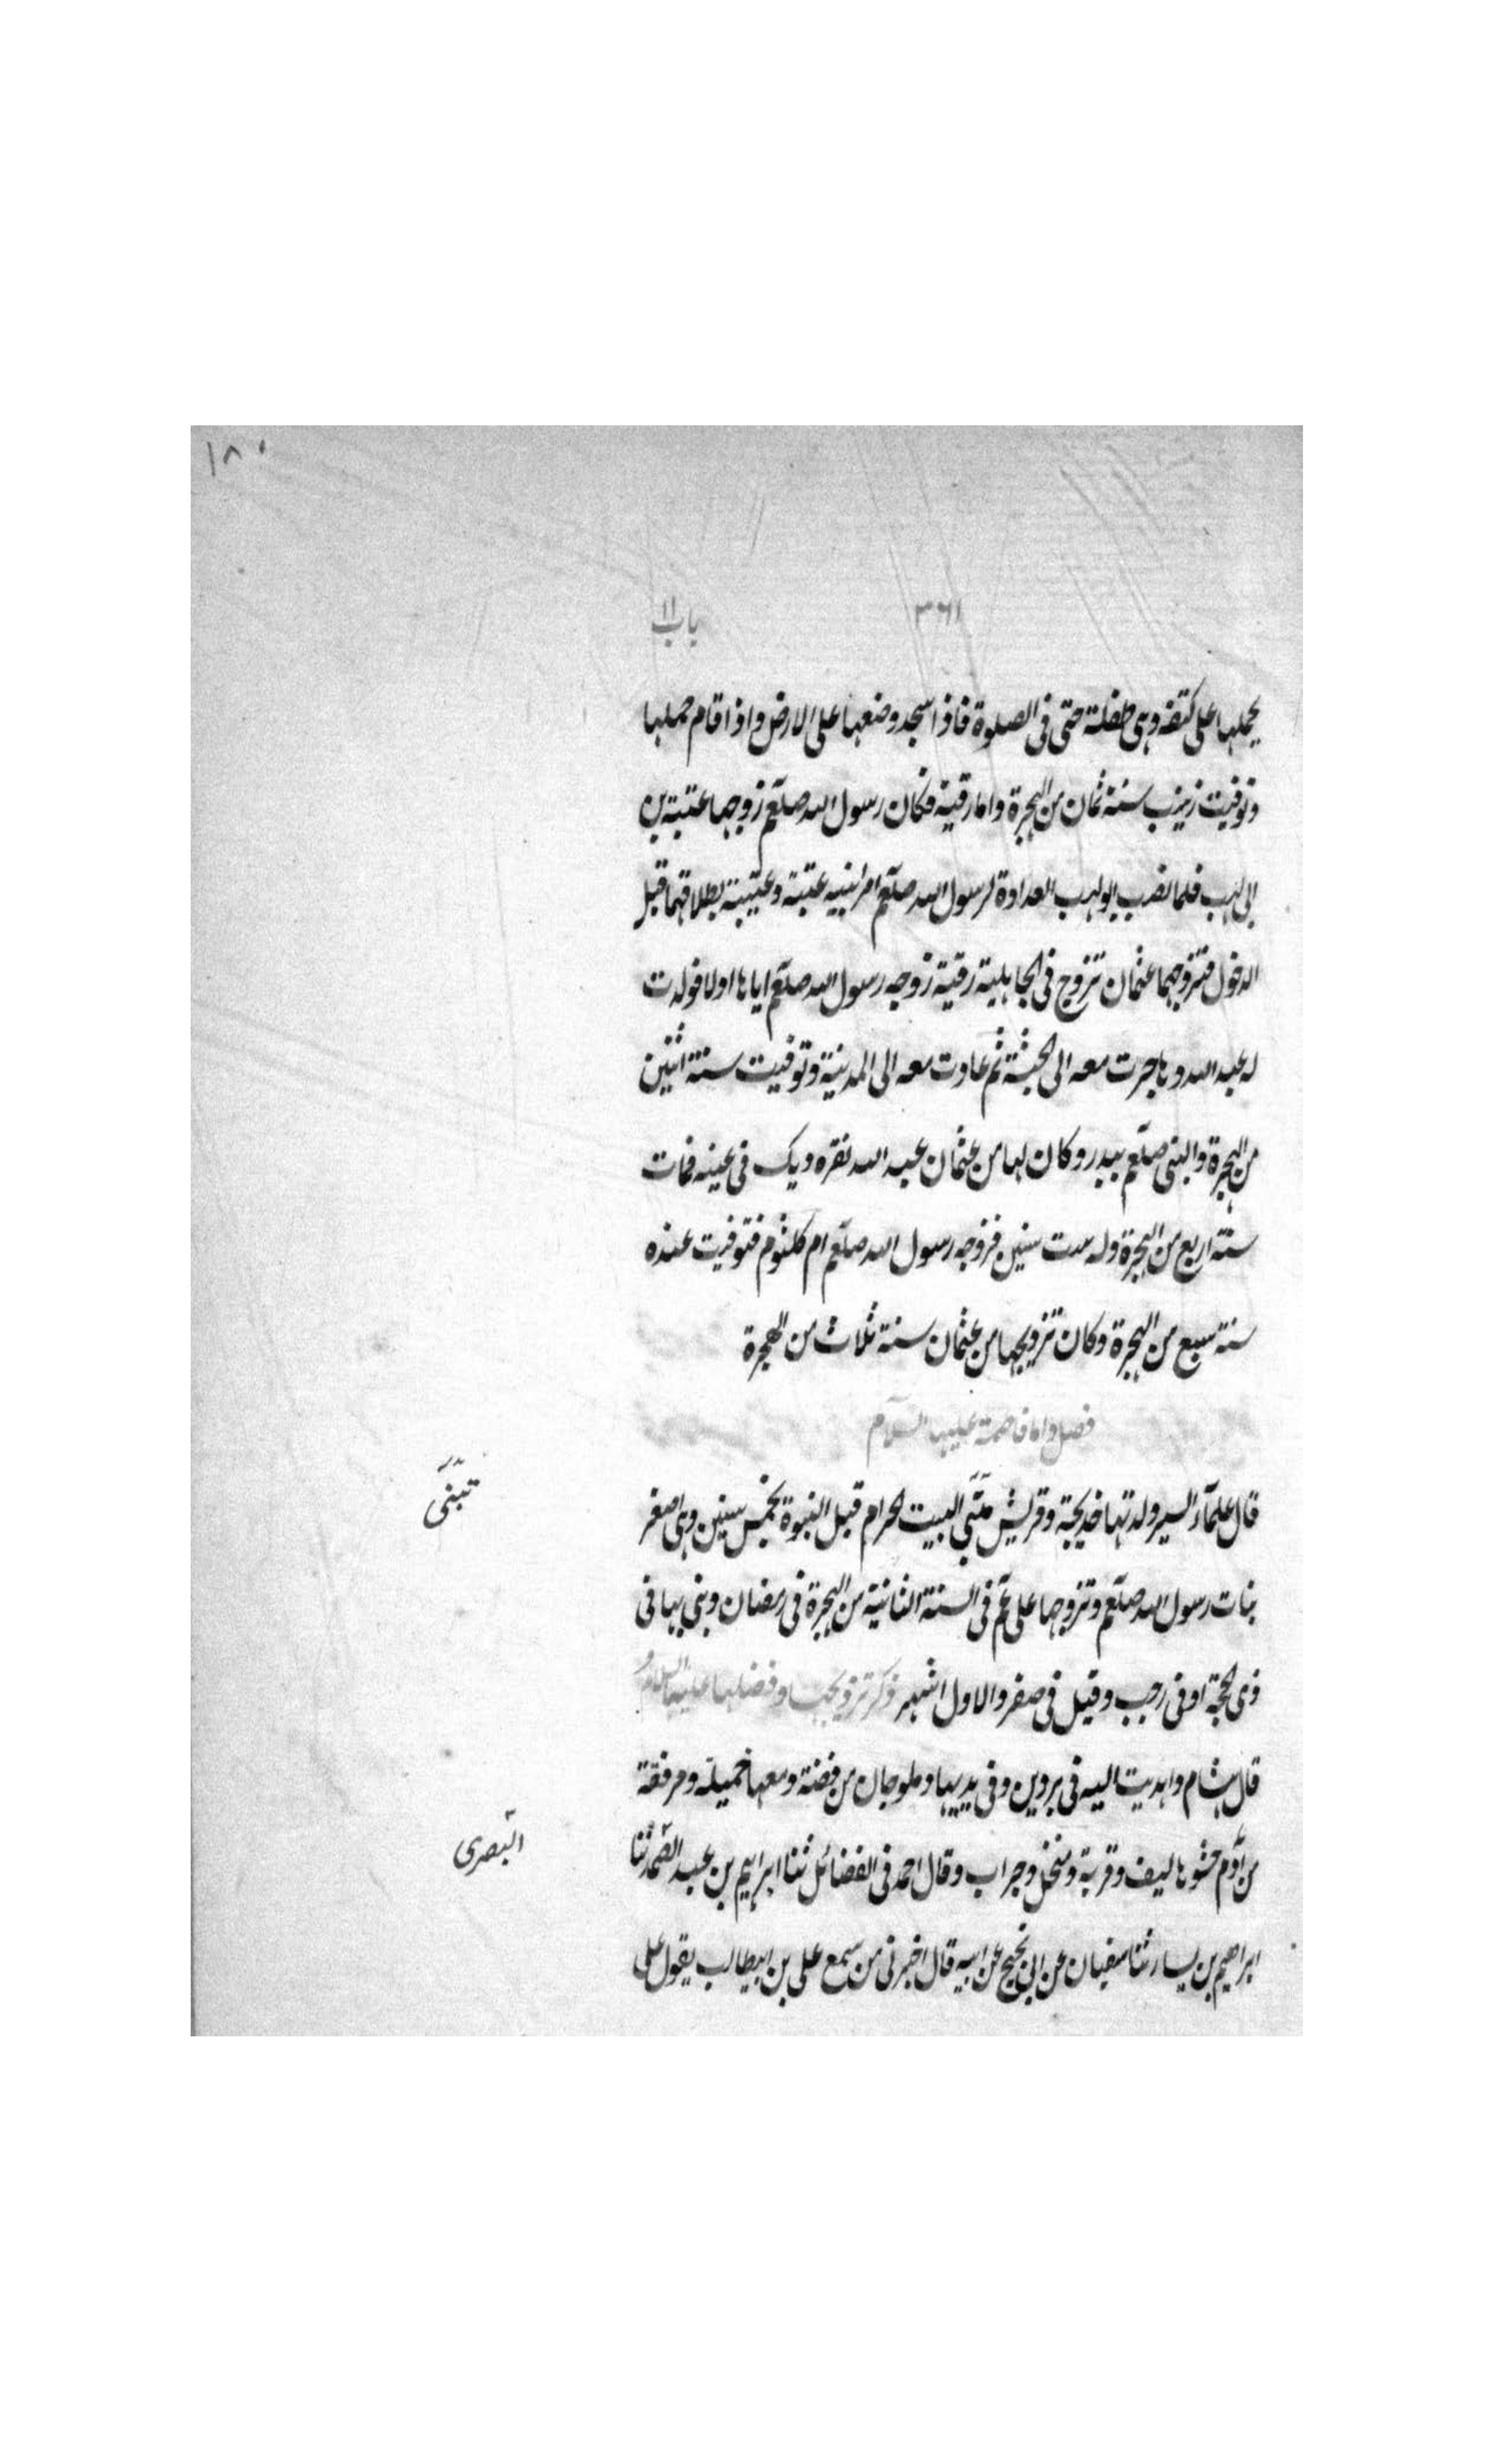 ١٨٠
٣٦١ باب ١١
يحملها على كتفه وهى طفلة حتى فى الصلوة فاذا سجد وضعها على الارض واذا قام حملها
وتوفيت زينب سنة ثمان من الهجرة واما رقية فكان رسول الله صلعم زوجها عتبة بن
ابى لهب فلما نصب ابولهب العداوة لرسول الله صلعم امر ابنيه عتبة وعتيبة بطلاقهما قبل
الدخول فتزوجهما عثمان تزوج فى الجاهلية رقية زوجه رسول الله صلعم اياها اولا فولدت
له عبد الله وهاجرت معه الى الحبشة ثم عادت معه الى المدينة وتوفيت سنة اثنين
من الهجرة والنبى صلعم ببدر وكان لها من عثمان عبد الله نقره ديك فى عينه فمات
سنة اربع من الهجرة وله ست سنين فزوجه رسول الله صلعم ام كلثوم فتوفيت عنده
سنة سبع من الهجرة وكان تزويجها من عثمان سنة ثلاث من الهجرة
فصل واما فاطمة عليها السلام
قال علماء السير ولدتها خديجة وقريش تبنى البيت الحرام قبل النبوة بخمس سنين وهى اصغر
تبنى
بنات رسول الله صلعم وتزوجها على عم فى السنة الثانية من الهجرة فى رمضان وبنى بها فى
ذى الحجة اوفى رجب وقيل فى صفر والاول اشهر ذكر تزويجها وفضلها عليها السلام و
قال هشام واهديت اليه فى بردين وفى يديها دملوجان من فضة ومعها خميلة ومرفقة
من أدم حشوها ليف وقربة ومنخل وجراب وقال احمد فى الفضائل ثنا ابراهيم بن عبد الصمد ثنا
البصرى
ابراهيم بن يسار ثنا سفيان عن ابن نجيح عن ابيه قال اخبرنى من سمع على بن ابيطالب يقول على